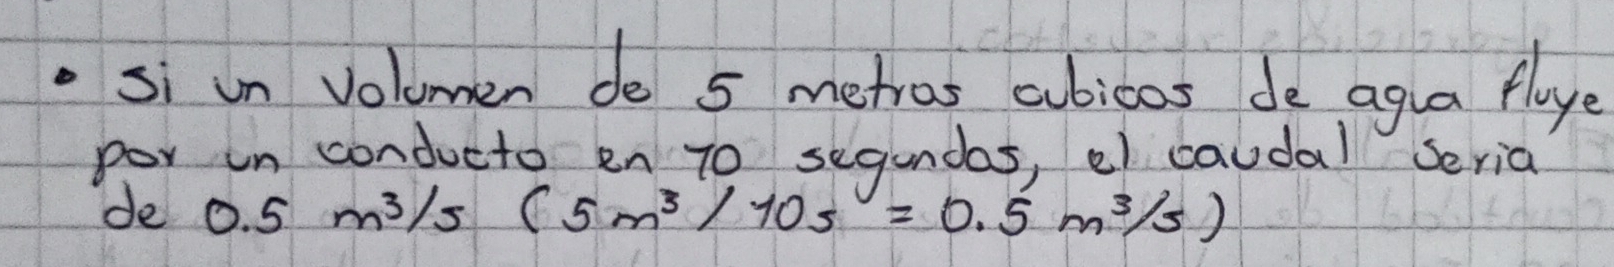 • Si un volumen de 5 metros cubicos de agua fluye
por un conducto en 10 segundos, el caudal seria
de 0.5 m³/s (5m³/10s = 0.5 m³/s)